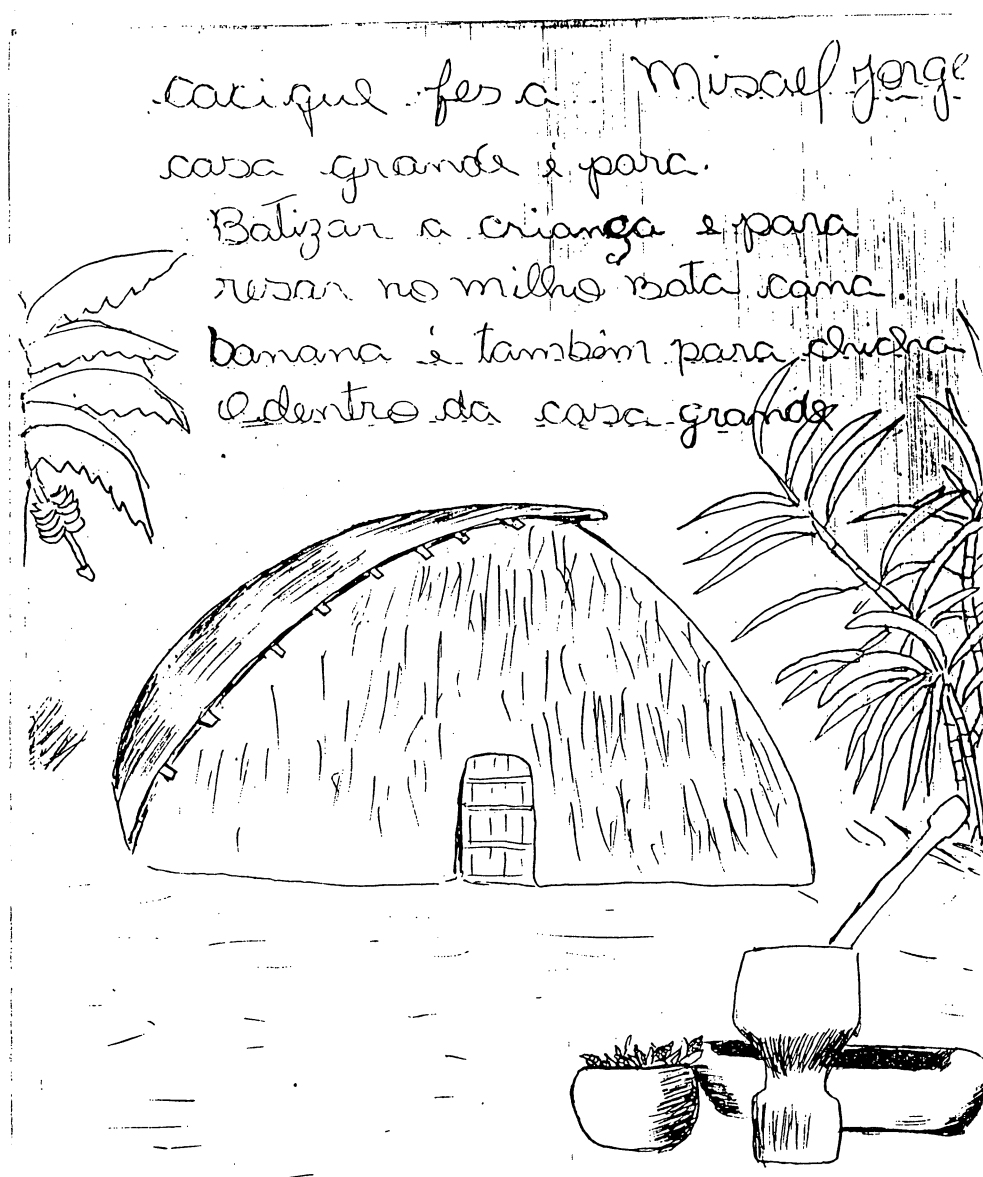 cacique fes a Misael Jorge
casa grande é para.
Batizar a criança e para
resar no milho Bata cana.
banana é também para chicha
O dentro da casa grande